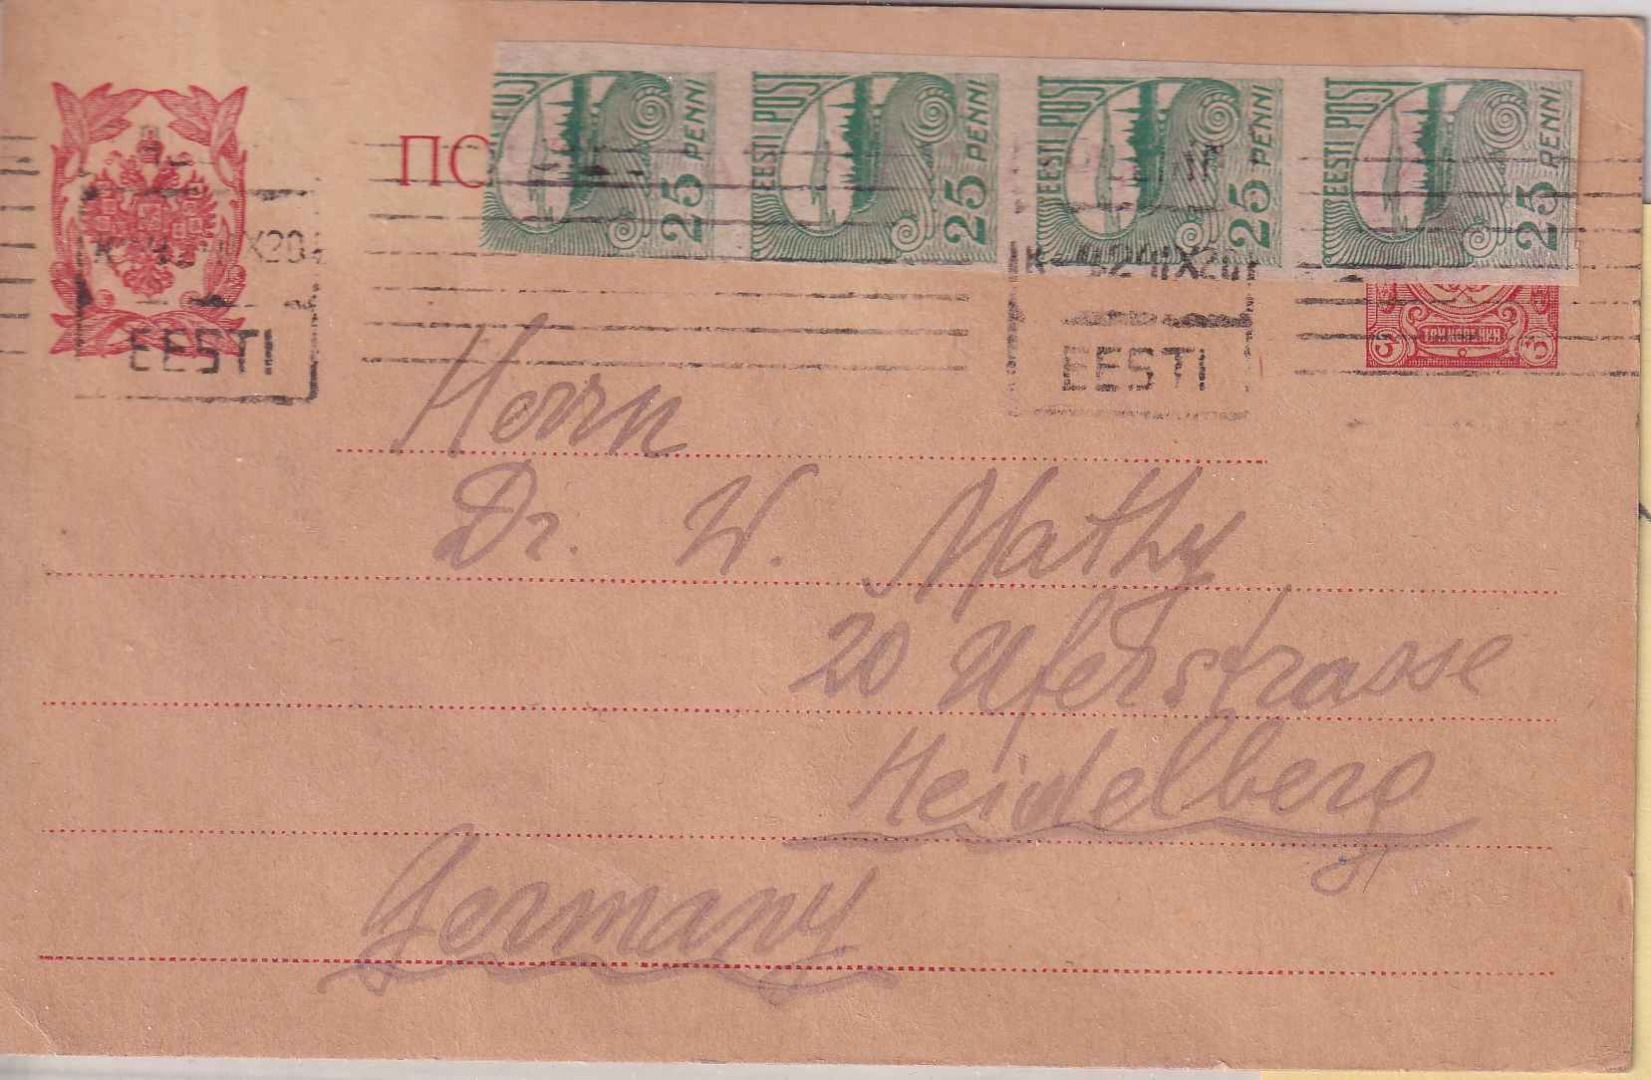 ПО
EESTI POST 25 PENNI
EESTI POST 25 PENNI
EESTI POST 25 PENNI
EESTI POST 25 PENNI
X20
EESTI
X20
EESTI
3 ТРИ КОПѢЙКИ 3
Herrn
Dr. W. Mathy
20 Uferstrasse
Heidelberg
Germany